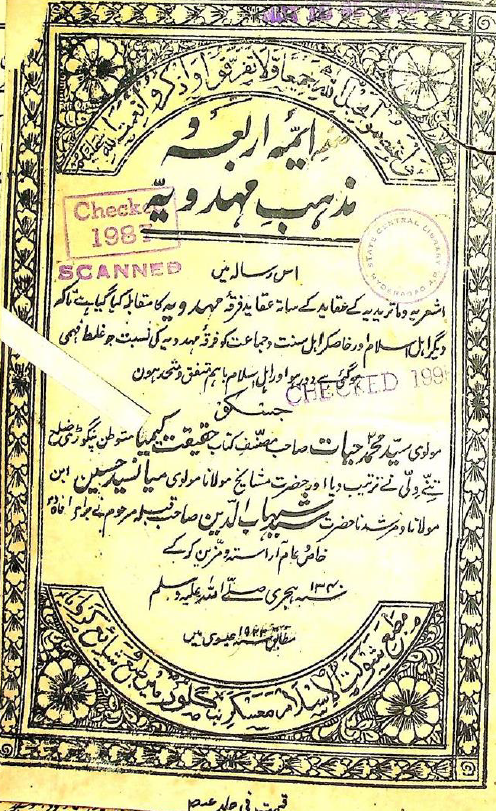 واعتصموا بحبل الله جمیعا ولا تفرقوا واذکروا نعمت الله
ایمۂ اربعہ و
مذہب مہدویہ
Checked
1987
SCANNED
STATE CENTRAL LIBRARY
HYDERABAD A.P.
اس رسالہ میں
اشعریہ وماتریدیہ کے عقاید کے ساتہ عقاید فرقۂ مہدویہ کا مقابلہ کیا گیا ہے تاکہ
دیگر اہل اسلام اور خاصکر اہل سنت وجماعت کو فرقۂ مہدویہ کی نسبت جو غلط فہمی
ہوگئی ہے دور ہو اور اہل اسلام باہم متفق ومتحد ہون
CHECKED 199
جسکو
مولوی سید محمد حیات صاحب مصنف کتاب حقیقت کیمیا متوطن
نے ترتیب دیا اور حضرت مشایخ مولانا مولوی میانسید حسین ابن
مولانا ومرشدنا حضرت سید شہاب الدین صاحب قبلہ مرحوم نے
خاص وعام آراستہ ومزین کرکے
سنہ ۱۳۴۰ ہجری صلے اللہ علیہ وسلم
مطابق سنہ ۱۹۲۲ عیسوی میں
مطبع شوکت الاسلام معسکر بنگلور میں طبع شایع کیا
قیمت فی جلد